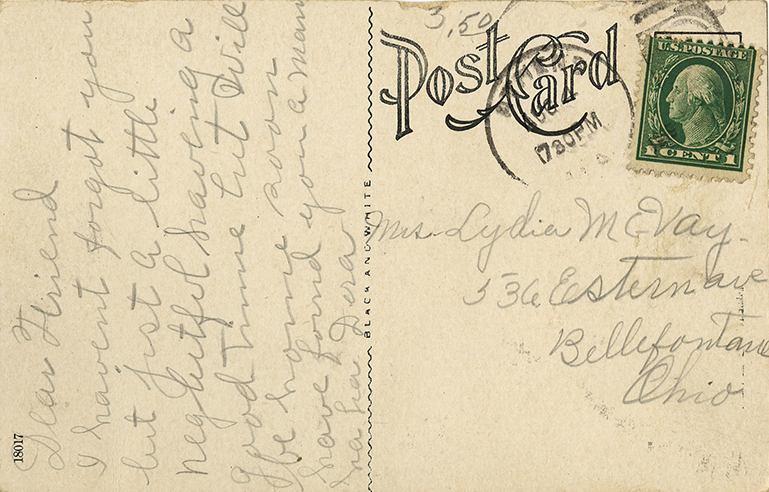 Dear Friend
I havent forgot you
but Just a little
neghtful having a
good time but will
be home soon
have found you a man
ha ha Dora
18017
BLACK AND WHITE
3,50
Post Card
730PM
U.S. POSTAGE
1 CENT 1
Mrs. Lydia McVay.
536 Estern ave
Bellefontane
Ohio